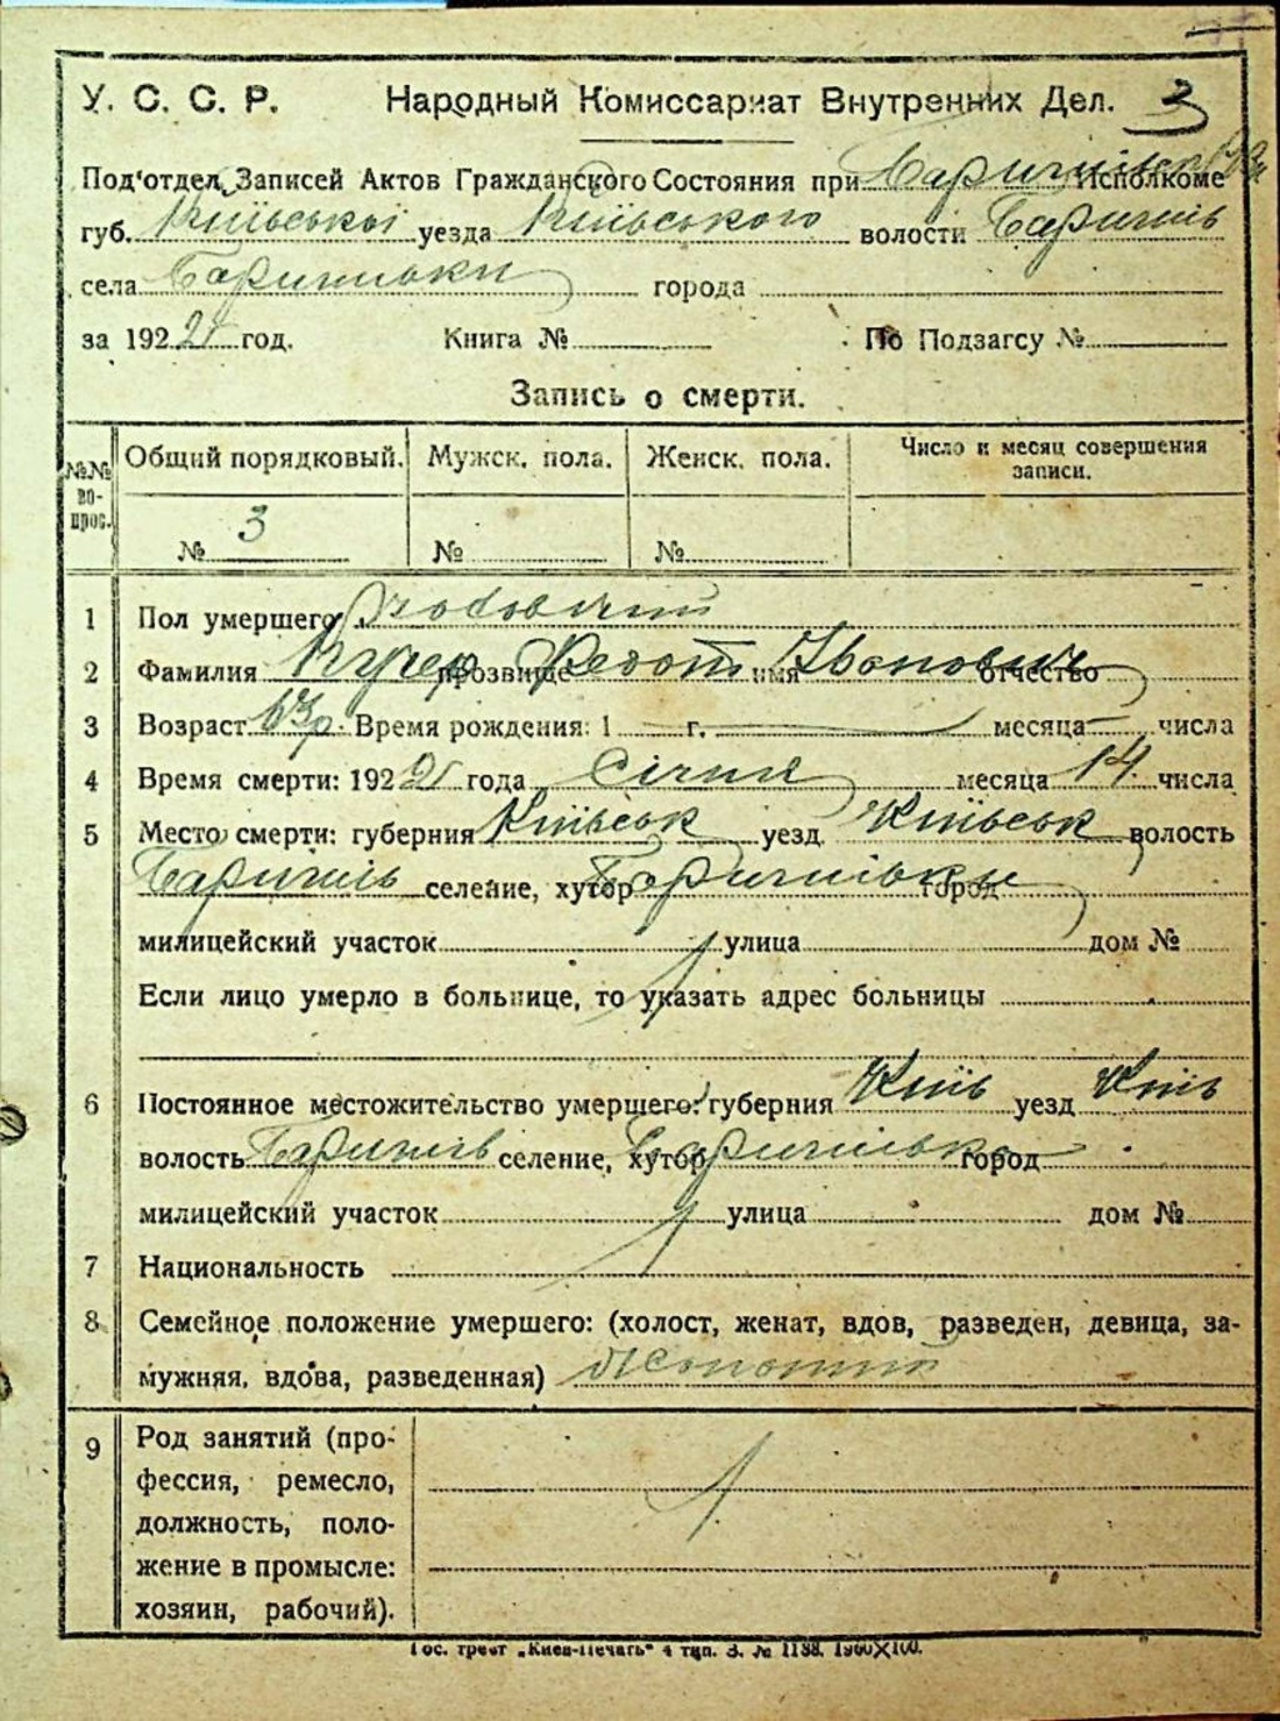 3
У. С. С. Р. Народный Комиссариат Внутренних Дел.
Под'отдел Записей Актов Гражданского Состояния при Исполкоме
губ. Київської уезда Київського волости Баришів
села Баришівки города
за 192 2 год. Книга № По Подзагсу №
Запись о смерти.
№№ вопрос. Общий порядковый. Мужск. пола. Женск. пола. Число и месяц совершения записи.
№ 3 № №
1 Пол умершего чоловічий
2 Фамилия Кучер прозвище Федот имя Іванович отчество
3 Возраст 63 р. Время рождения: 1 г. месяца числа
4 Время смерти: 192 2 года Січня месяца 14 числа
5 Место смерти: губерния Київськ уезд Київськ волость
Баришів селение, хутор Баришівки город
милицейский участок улица дом №
Если лицо умерло в больнице, то указать адрес больницы
6 Постоянное местожительство умершего: губерния Київ уезд Київ
волость Баришів селение, хутор Баришівка город
милицейский участок улица дом №
7 Национальность
8 Семейное положение умершего: (холост, женат, вдов, разведен, девица, за-
мужняя, вдова, разведенная) жонатий
9 Род занятий (про-
фессия, ремесло,
должность, поло-
жение в промысле:
хозяин, рабочий).
Гос. трест „Киев-Печать" 4 тип. З. № 1138. 1960×100.